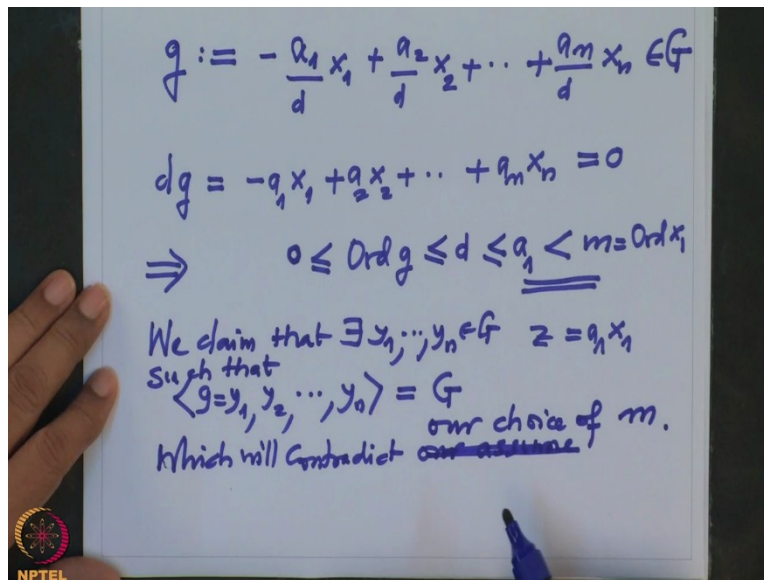 g := - a₁/d x₁ + a₂/d x₂ + ·· + aₙ/d xₙ ∈ G
dg = -a₁x₁ + a₂x₂ + ·· + aₙxₙ = 0
⇒ 0 ≤ Ord g ≤ d ≤ a₁ < m = Ord x₁
We claim that ∃ y₁, ··, yₙ ∈ G z = a₁x₁
such that
⟨g = y₁, y₂, ···, yₙ⟩ = G
our choice of m.
Which will Contradict our assume
NPTEL